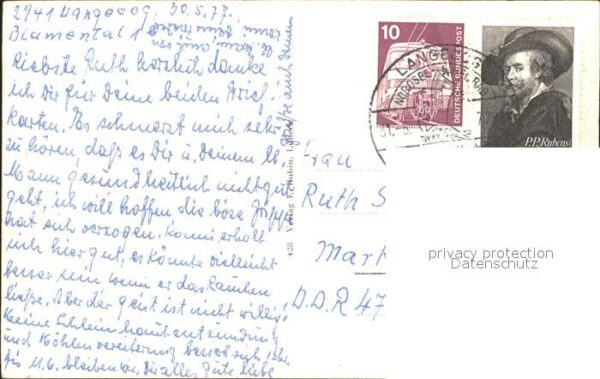 2941 Langeoog, 30.5.77.
Diamantal 1
Liebste Ruth herzlich danke
ich Dir für Deine beiden Brief
karten. Es schmerzt mich sehr
zu hören, daß es Dir u, Deinem lb.
Mann gesundheitlich nicht gut
geht, ich will hoffen die böse
hat sich verzogen. Konni erholt
sich hier gut, es könnte vielleicht
besser sein wenn er das Rauchen
ließe. Aber der geist ist nicht willig.
Meine Schleimhautentzündung
und Höhlenvereiterung bessert sich sehr.
bis 11.6. bleiben wir. Dir alles gute liebe
428 Verlag
Frau
Ruth S
Mark
D.D.R 47
10
DEUTSCHE BUNDESPOST
LANGE
NORDSEE
P.P. Rubens
privacy protection
Datenschutz